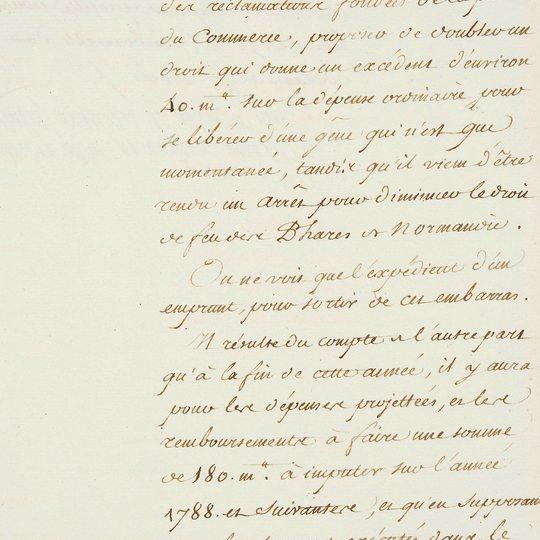 des réclamations fondées de la
du Commerce, proposer de doubler un
droit qui donne un excédent d'environ
40. m.tt sur la dépense ordinaire pour
se libérer d'une gêne qui n'est que
momentanée, tandis qu'il vient d'être
rendu un Arrêt pour diminuer le droit
de feu des Phares de Normandie.
On ne voit que l'expédient d'un
emprunt, pour sortir de cet embarras.
Il résulte du compte de l'autre part
qu'à la fin de cette année, il y aura
pour les dépenses projettées, et les
remboursements à faire une somme
de 180. m.tt à imputer sur l'année
1788. et suivantes, et qu'en supposant
dans le